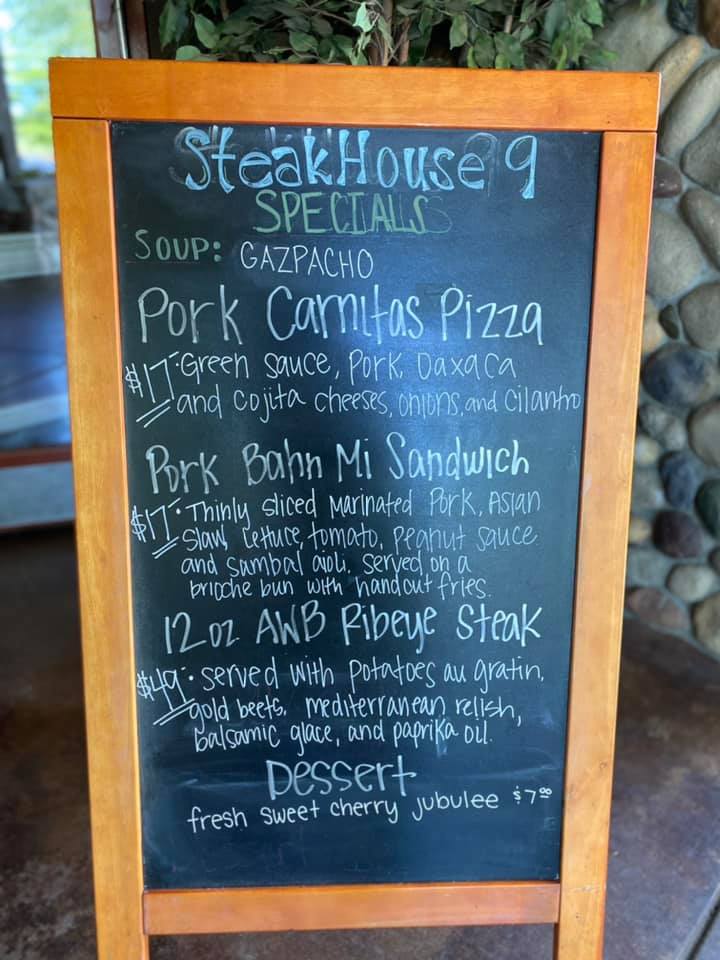 SteakHouse 9
SPECIALS
SOUP: GAZPACHO
Pork Carnitas Pizza
$17 · Green sauce, Pork, Oaxaca
and cojita cheeses, onions, and cilantro
Pork Bahn Mi Sandwich
$17 · Thinly sliced marinated Pork, Asian
Slaw, Lettuce, tomato, peanut sauce
and sambal aioli, served on a
brioche bun with handcut fries.
12 oz AWB Ribeye Steak
$49 · served with potatoes au gratin,
gold beets, mediterranean relish,
balsamic glace, and paprika oil.
Dessert
fresh sweet cherry jubulee $7.00